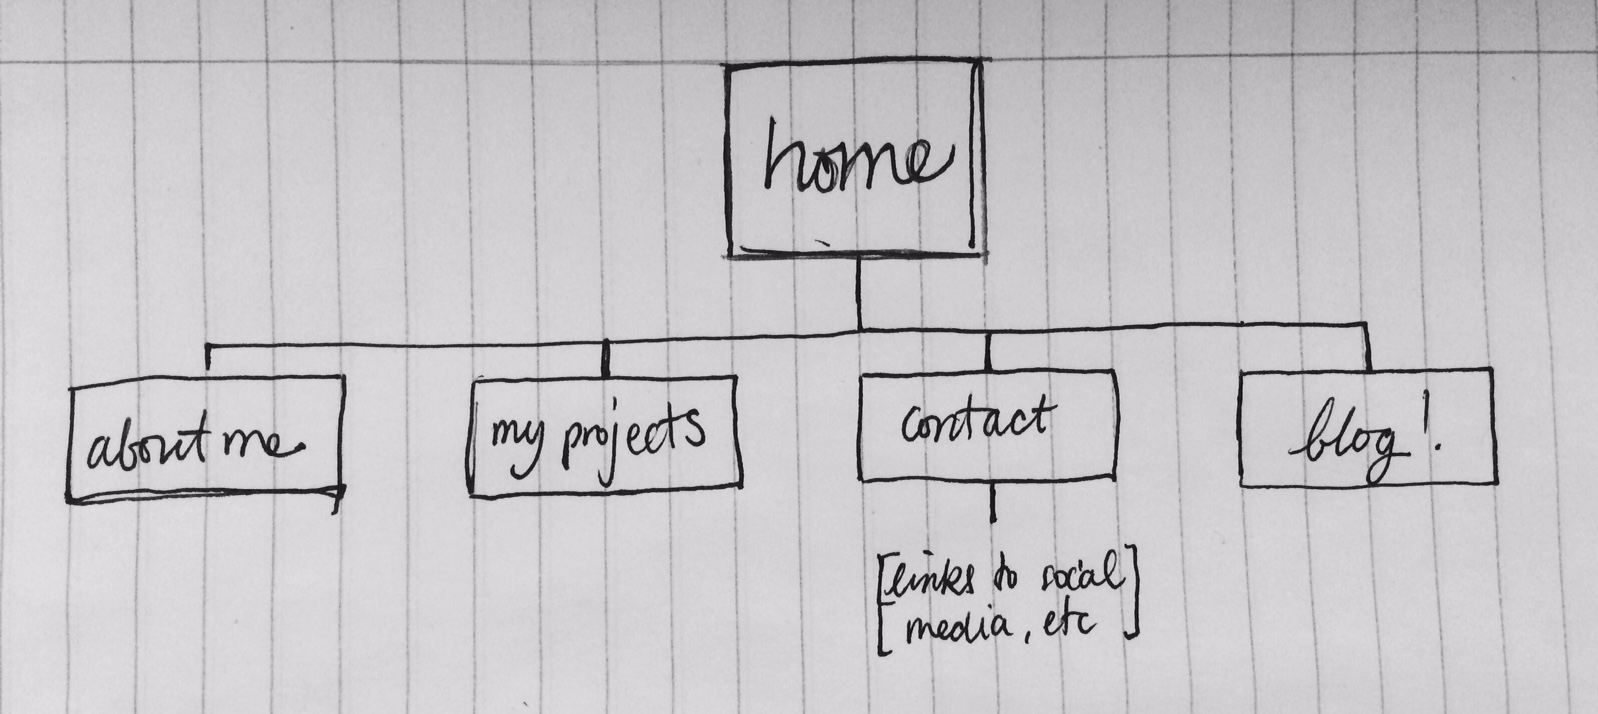 home
about me
my projects
contact
blog!
[links to social
media, etc]